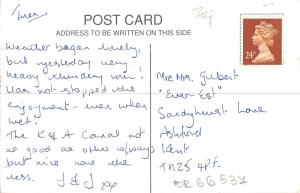 Tues
20p
POST CARD
ADDRESS TO BE WRITTEN ON THIS SIDE
24P
Weather began lovely,
but yesterday very
heavy thundery rain!
Has not stopped the
enjoyment - even when
wet!
The K & A Canal not
as good as other (s)ways
but nice none the
less.
J & J xx
Mr & Mrs Gilbert
"Ever Est"
Sandyhurst Lane
Ashford
Kent
TN25 4PF.
66537